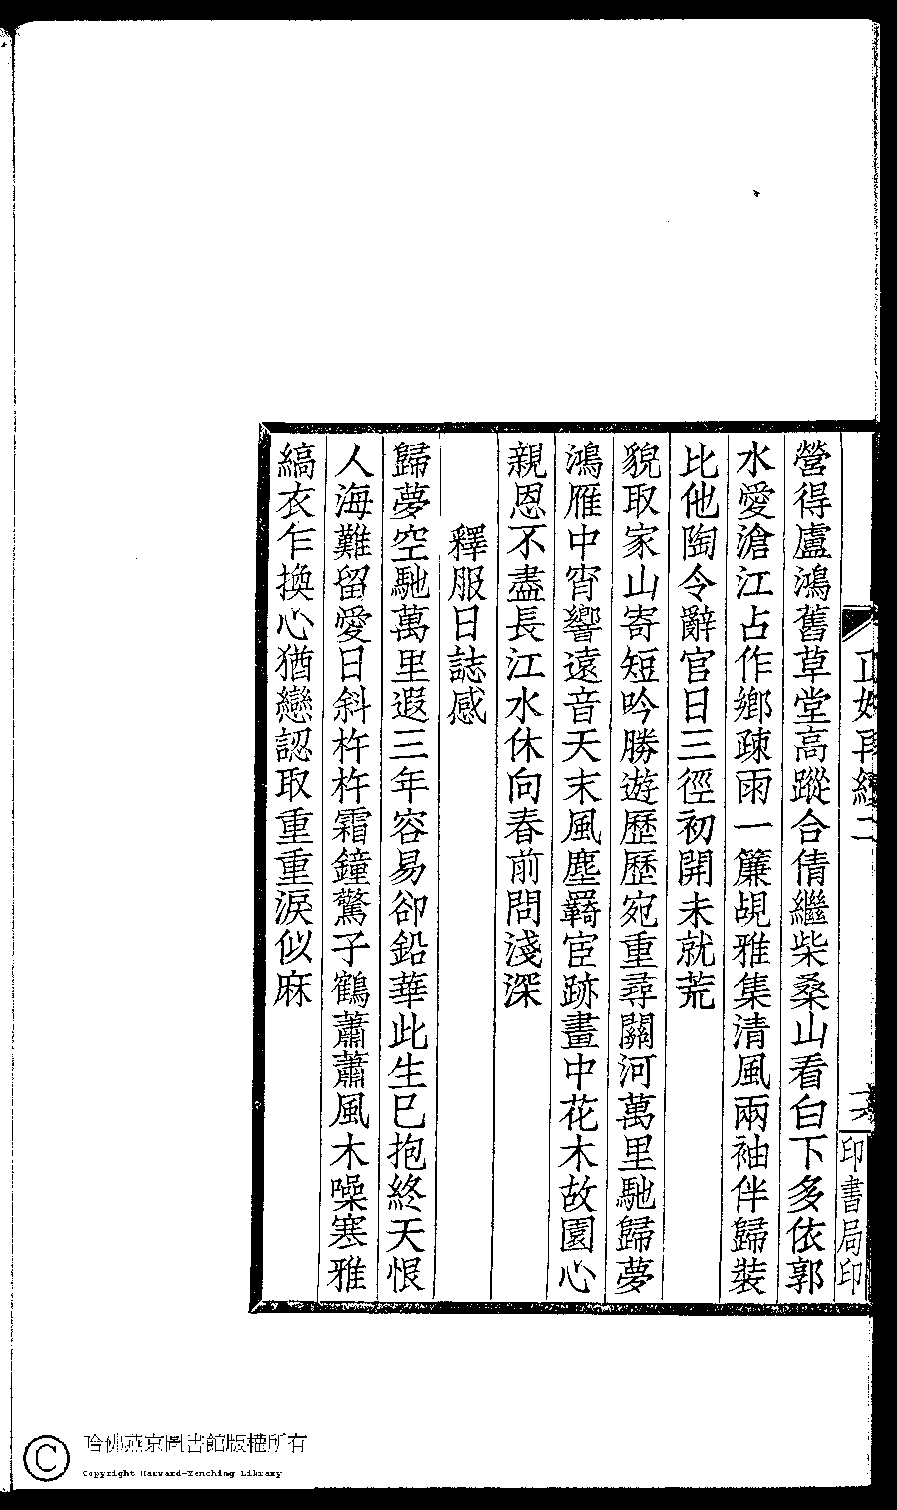 營得盧鴻舊草堂高蹤合倩繼柴桑山看白下多依郭
水愛滄江占作鄉疎雨一簾覘雅集清風兩袖伴歸裝
比他陶令辭官日三徑初開未就荒
貌取家山寄短吟勝遊歷歷宛重尋關河萬里馳歸夢
鴻雁中宵響遠音天末風塵羇宦跡畫中花木故園心
親恩不盡長江水休向春前問淺深
釋服日誌感
歸夢空馳萬里遐三年容易卻鉛華此生已抱終天恨
人海難留愛日斜杵杵霜鐘驚子鶴蕭蕭風木噪寒雅
縞衣乍換心猶戀認取重重淚似麻
再續二
六
印書局印
哈佛燕京圖書館版權所有
Copyright Harvard-Yenching Library